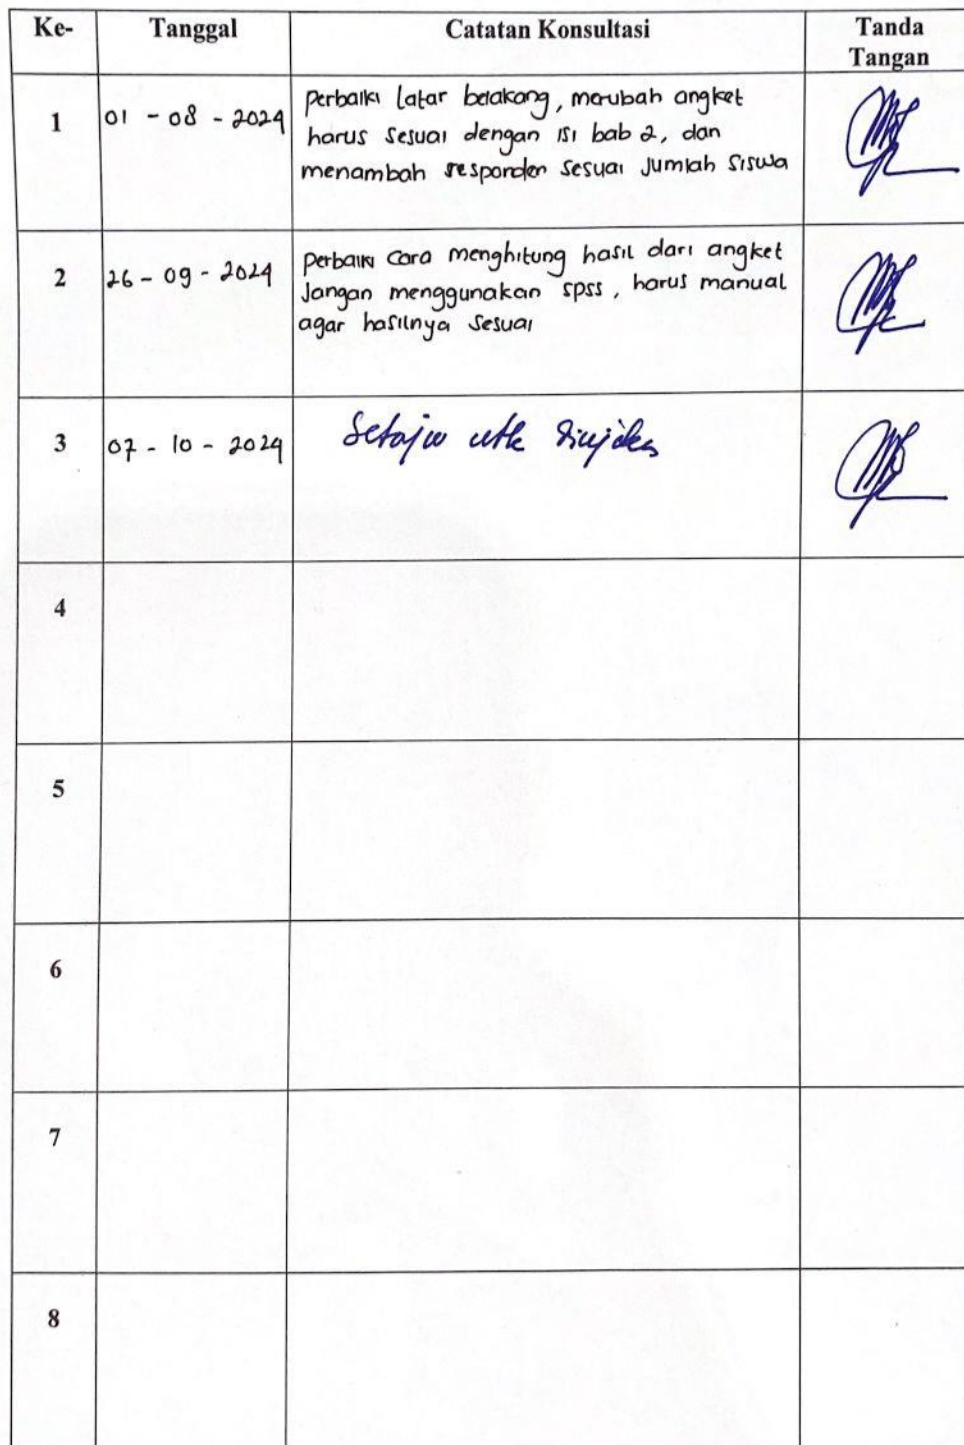 Ke- Tanggal Catatan Konsultasi Tanda
Tangan
1 01 - 08 - 2024 perbaiki latar belakang, merubah angket
harus sesuai dengan isi bab 2, dan
menambah responden sesuai Jumlah siswa
2 26 - 09 - 2024 perbaiki cara menghitung hasil dari angket
Jangan menggunakan spss, harus manual
agar hasilnya sesuai
3 07 - 10 - 2024 Setuju utk diujikan
4
5
6
7
8